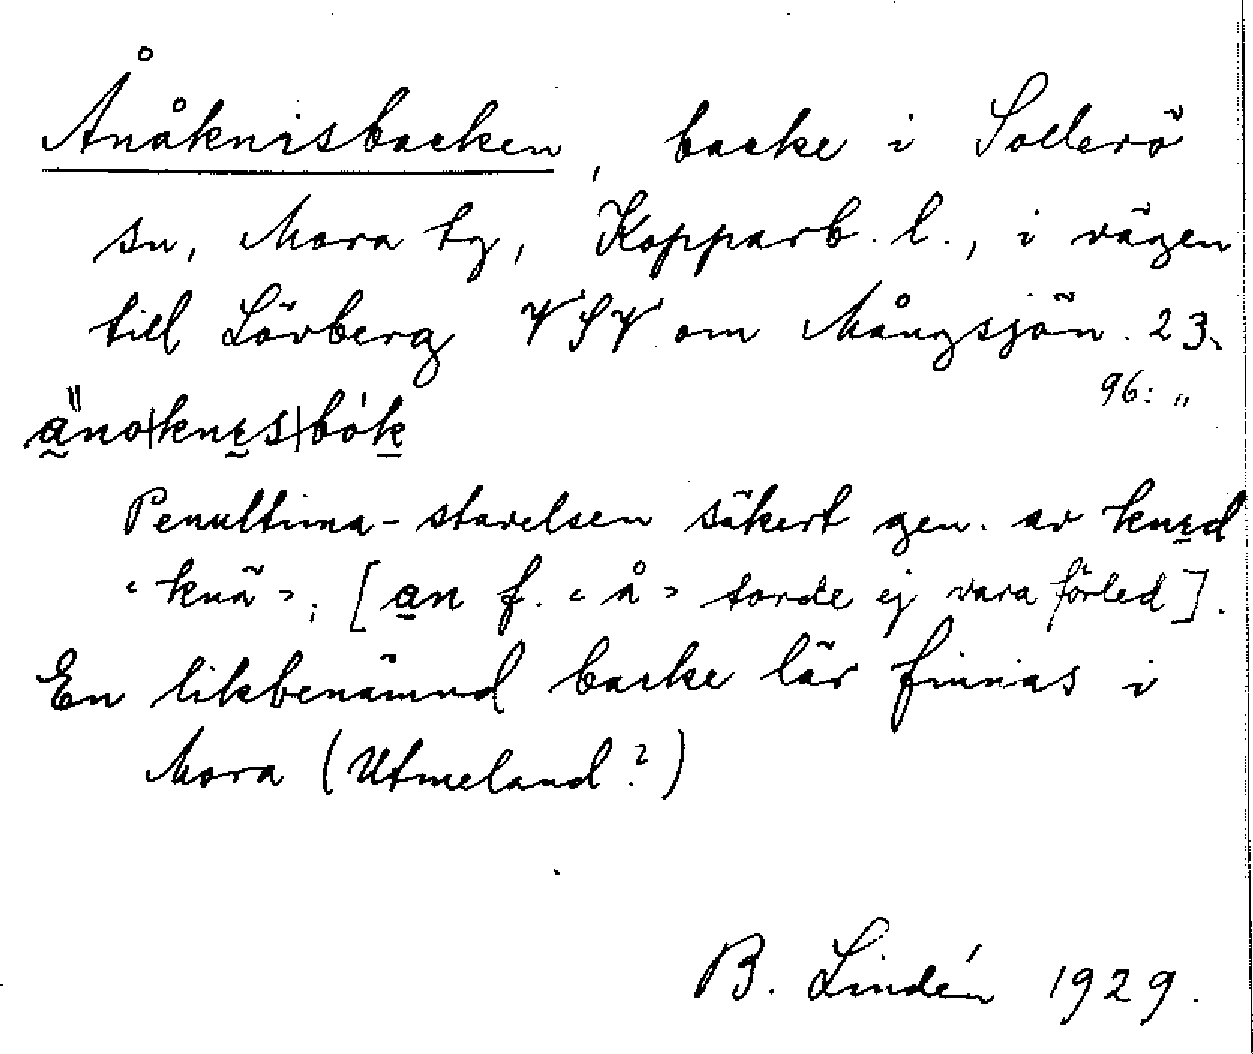 Ånåknisbacken, backe i Sollerö
sn, Mora tg, Kopparb. l., i vägen
till Lövberg VSV om Mångsjön. 23.
96: „
äno|knɪs|bók
Penultima-stavelsen säkert gen. av knɪd
"knä"; [an f. "å" torde ej vara förled].
En likbenämnd backe lär finnas i
Mora (Utmeland?)
B. Lindén 1929.